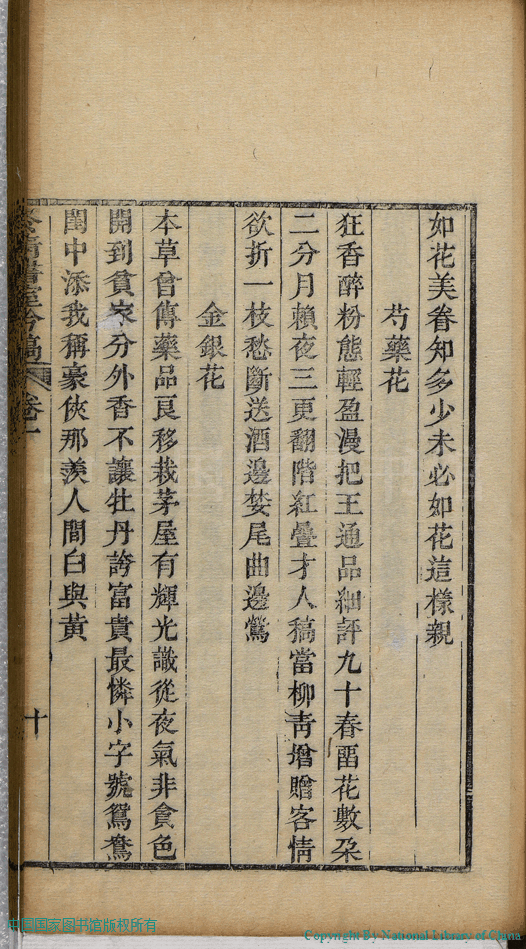 如花美眷知多少未必如花這樣親
芍藥花
狂香醉粉態輕盈漫把王通品細評九十春畱花數朶
二分月賴夜三更翻階紅疊才人稿當柳靑增贈客情
欲折一枝愁斷送酒邊婪尾曲邊鶯
金銀花
本草曾傳藥品良移栽茅屋有輝光識從夜氣非貪色
開到貧家分外香不讓牡丹誇富貴最憐小字號鴛鴦
閨中添我稱豪俠那羡人間白與黃
書室吟稿 卷一
十
中国国家图书馆版权所有
Copyright By National Library of China